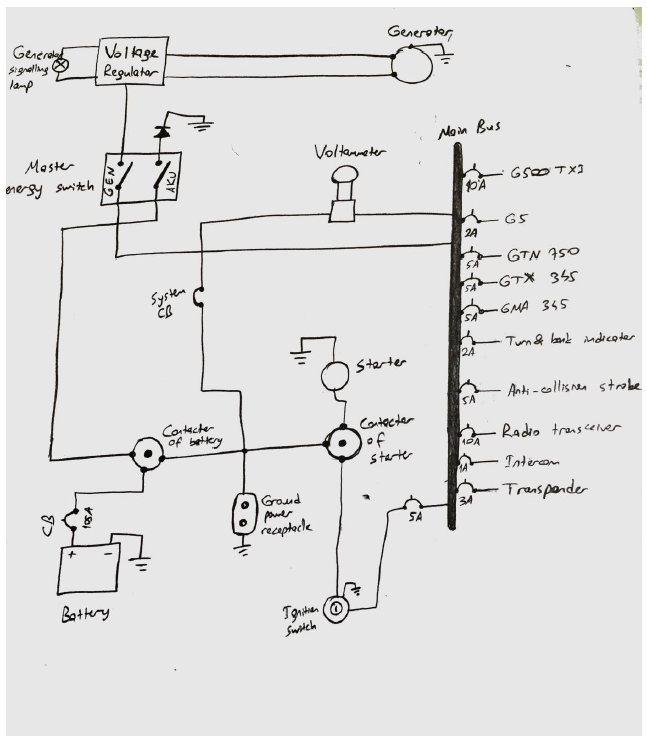 Generator
Generator
signalling
lamp
Voltage
Regulator
Main Bus
Master
energy switch
GEN
AKU
Voltammeter
10A
G500 TXI
2A
G5
5A
GTN 750
5A
GTX 345
5A
GMA 345
2A
Turn & bank indicator
5A
Anti-collision strobe
10A
Radio transceiver
1A
Intercom
3A
Transponder
System
CB
Starter
Contacter
of battery
Contacter
of
starter
CB
105A
Ground
power
receptacle
5A
+ -
Battery
Ignition
switch